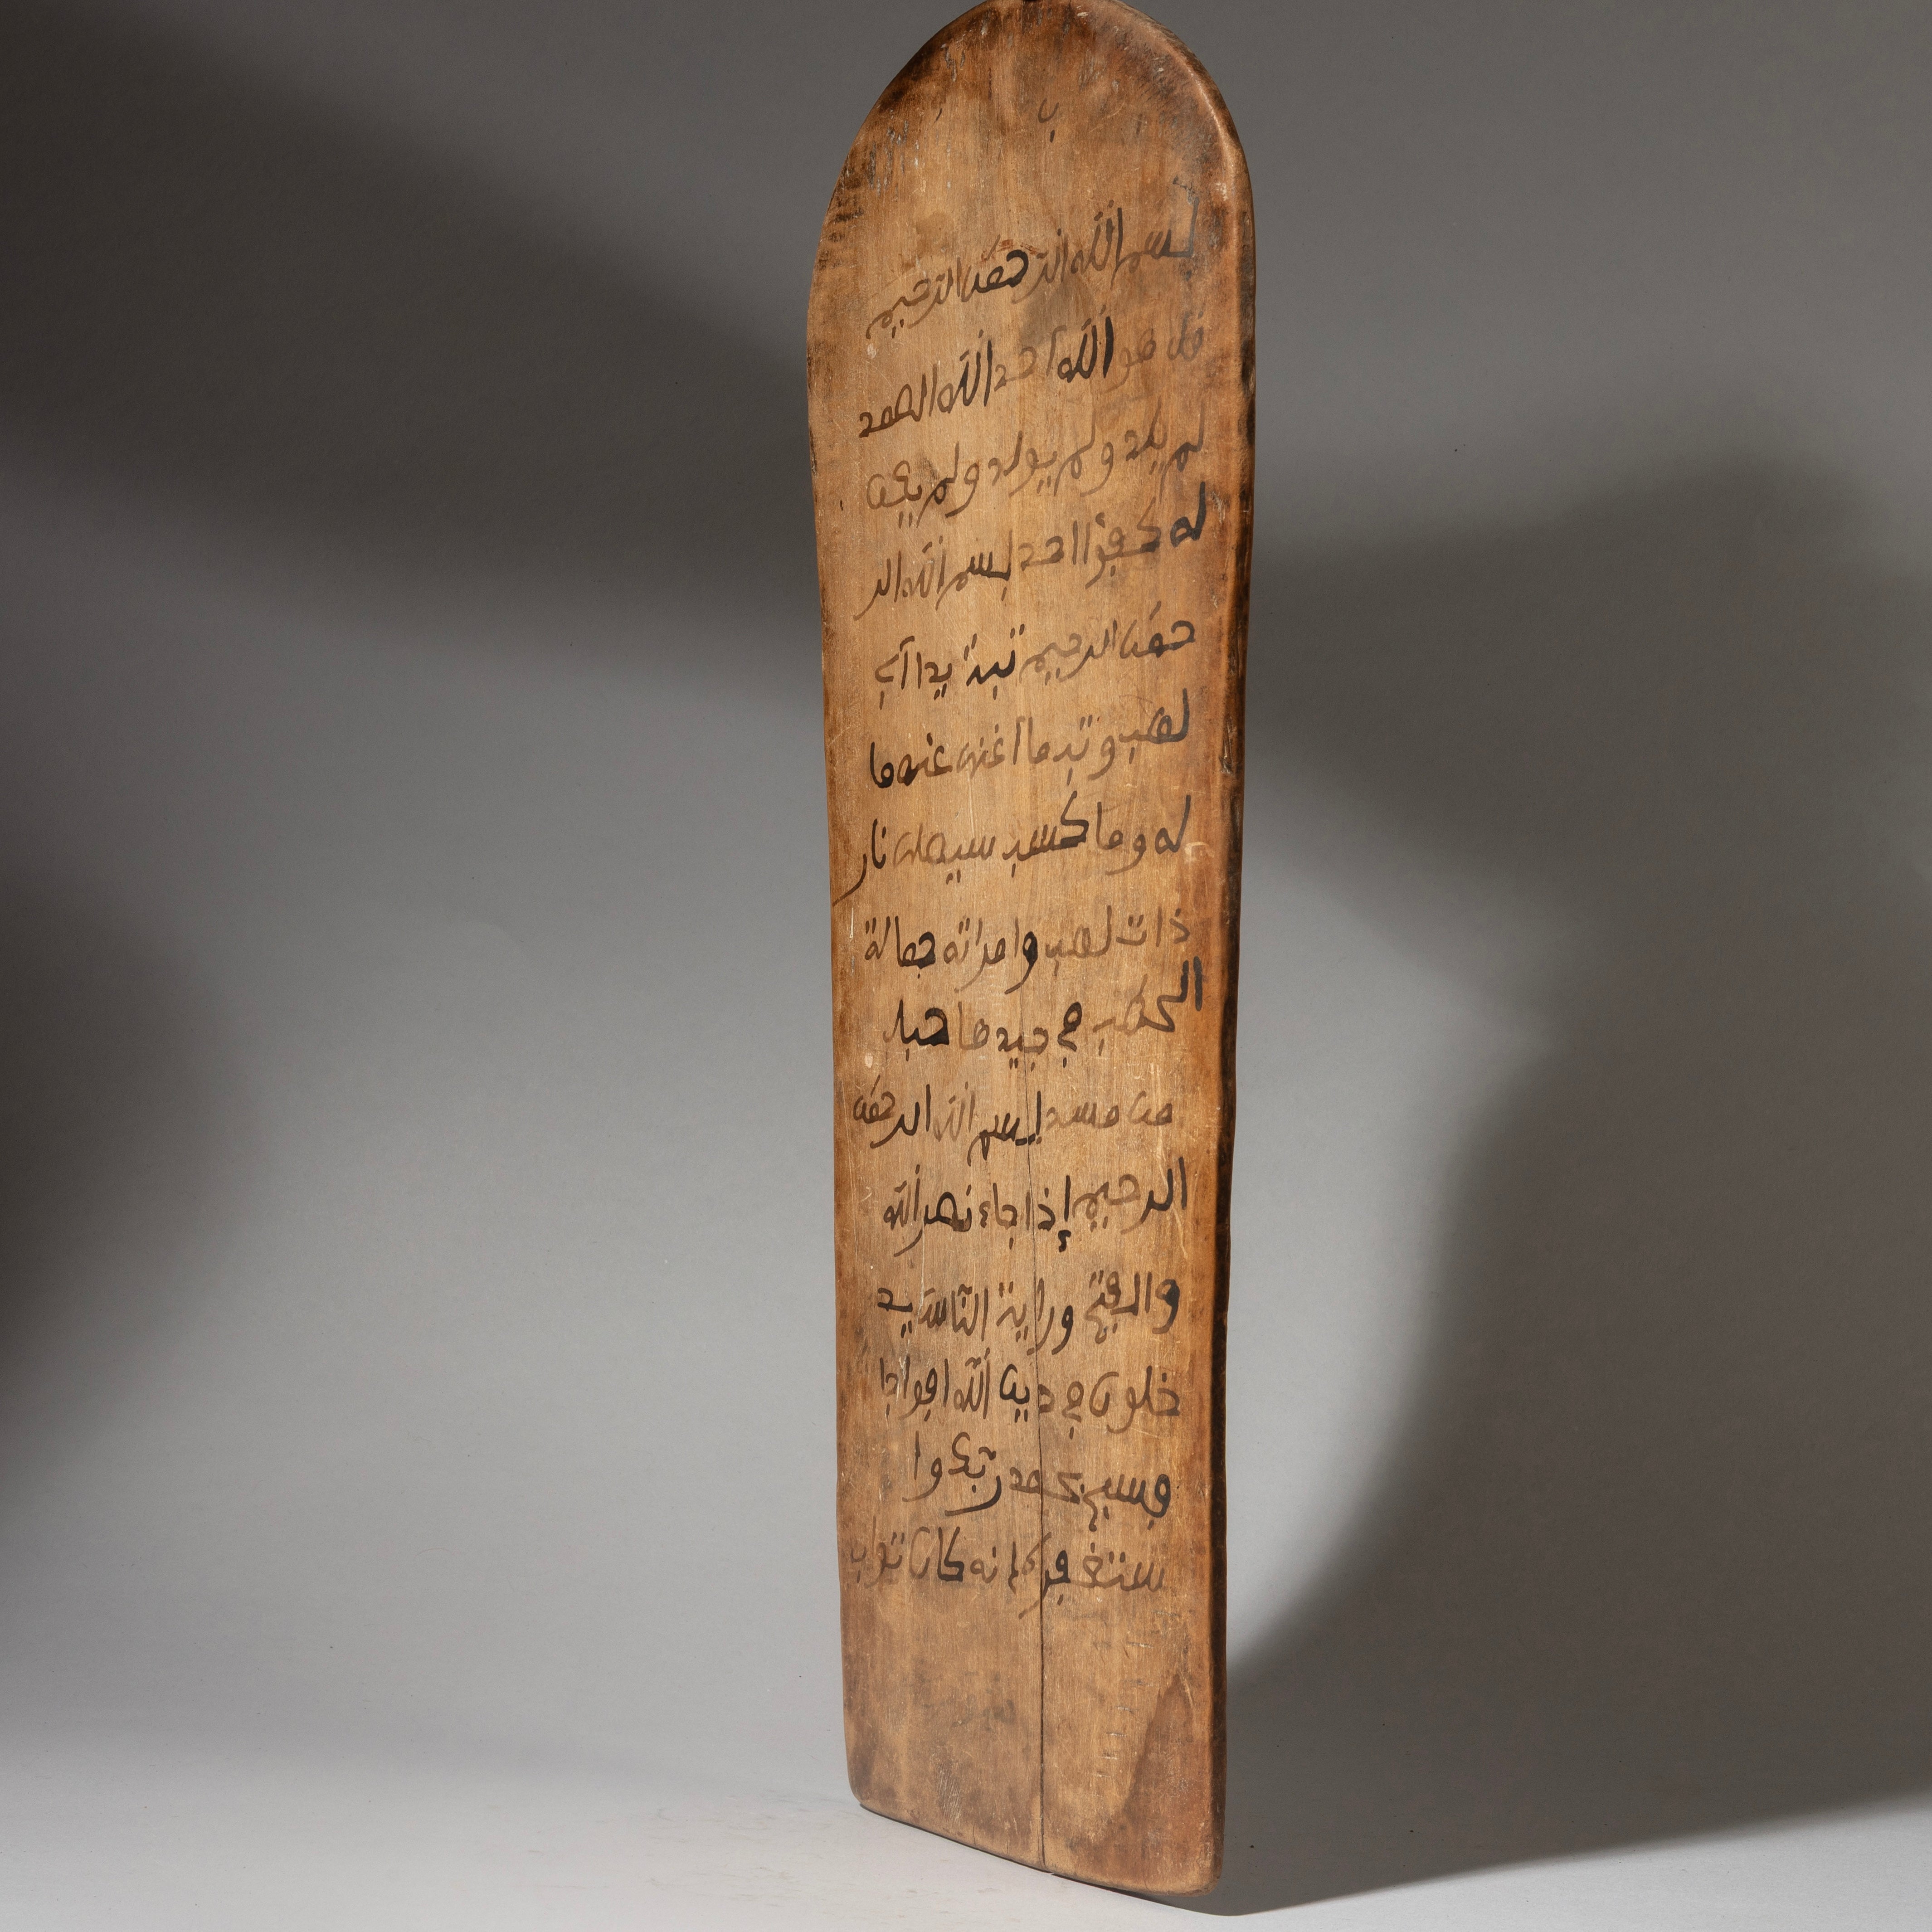 بسم الله الرحمن الرحيم
قل هو الله احد الله الصمد
لم يلد ولم يولد ولم يكن
له كفوا احد بسم الله الر
حمن الرحيم تبة يدا آبي
لهب وتب ما اغنى عنه ما
له وما كسب سيصلى نار
ذات لهب وامراته حمالة
الحطب في جيدها حبل
من مسد بسم الله الرحمن
الرحيم إذا جاء نصر الله
والفتح وراية الناس يد
خلون في دين الله افواجا
فسبح بحمد ربك وا
ستغفره انه كان توابا